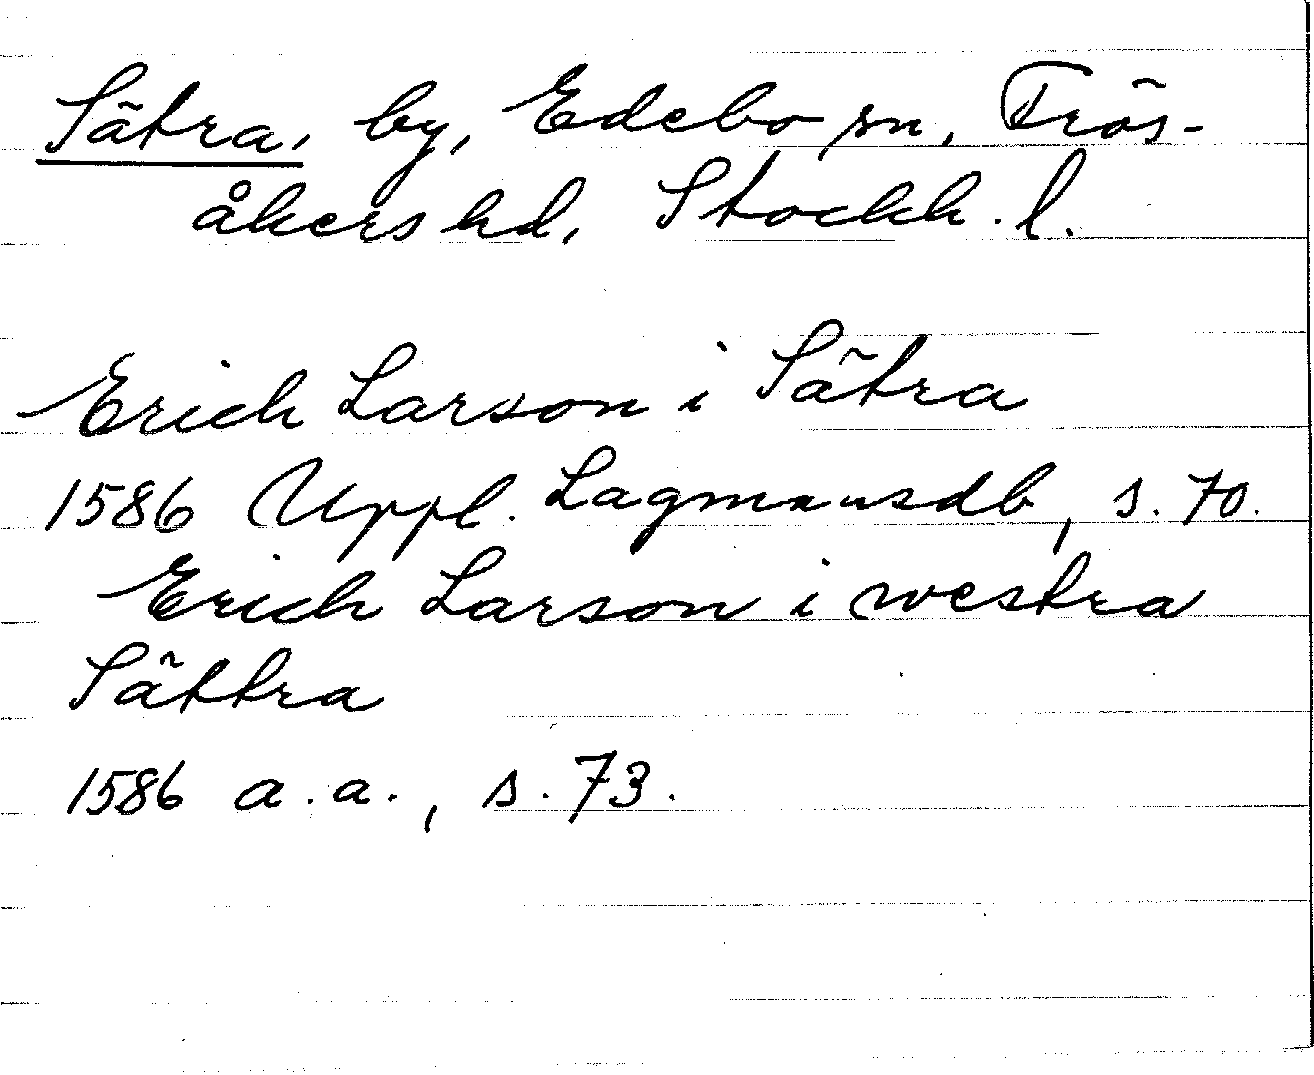 Sätra, by, Edebo sn, Frös-
åkers hd, Stockh. l.
Erich Larson i Sätra
1586 Uppl. Lagmansdb, s. 70.
Erich Larson i westra
Sättra
1586 a. a., s. 73.